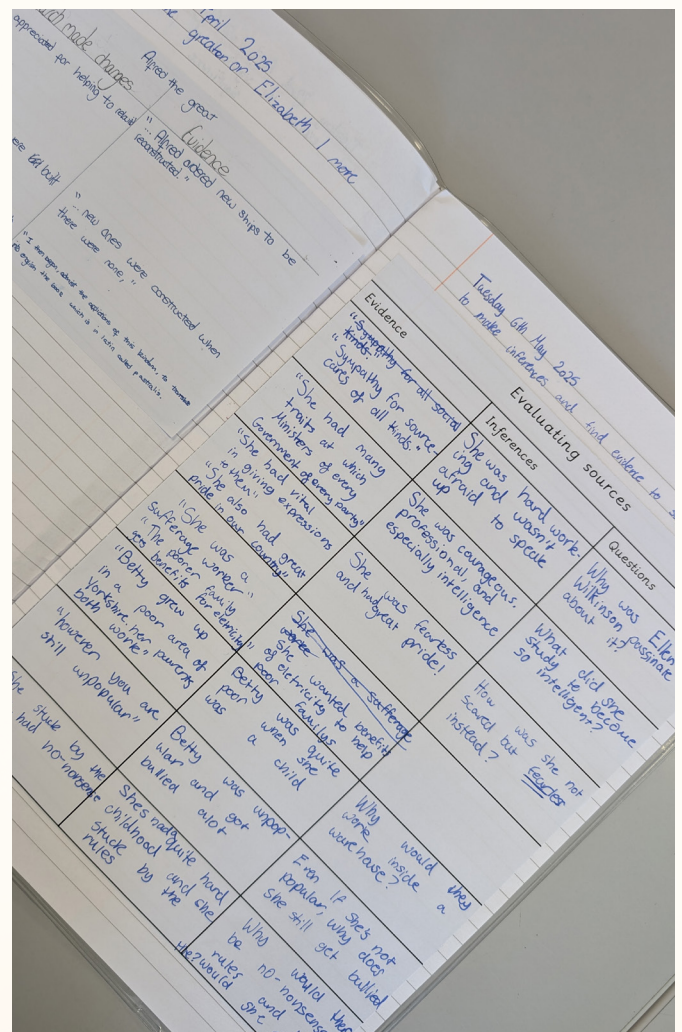 April 2025
greation or Elizabeth 1 more
made changes
appreciated for helping to rebuild
built
Alfred the great
Evidence
"... Alfred ordered new ships to be
reconstructed."
"... new ones were constructed when
there were none,"
Tuesday 6th May 2025
to make inferences and find evidence to
Evaluating sources
Evidence
Inferences
Questions
"Sympathy for all social
kinds."
"Sympathy for source
cares of all kinds."
She was hard work-
ing and wasn't
afraid to speak
up
Why was Ellen
Wilkinson passinate
about it?
"She had many
traits at which
Ministers of every
Government of every party"
She was courageous,
professional, and
especially intelligence
What did she
study to become
so intelligent?
"She had vital
in giving expressions
to them"
"She also had great
pride in our country"
She was fearless
and had great pride!
How was she not
scared but
instead?
"She was a
sufferage worker"
"The poorer family
gets benefits for eletricity"
She was a sufferage
She wanted benefits
of eletricity to help
poor familys
"Betty grew up
in a poor area of
Yorkshire: her parents
both work"
Betty was quite
poor when she
was a child
Why would they
work inside a
warehouse?
"however you are
still unpopular"
Betty was unpop-
ular and got
bullied alot
Even if she's not
popular, why does
she still get bullied
She
stuck by the
had no-nonsense
She's had quite hard
childhood and she
stuck by the
rules
Why would ther
be no-nonsense
rules and
would she